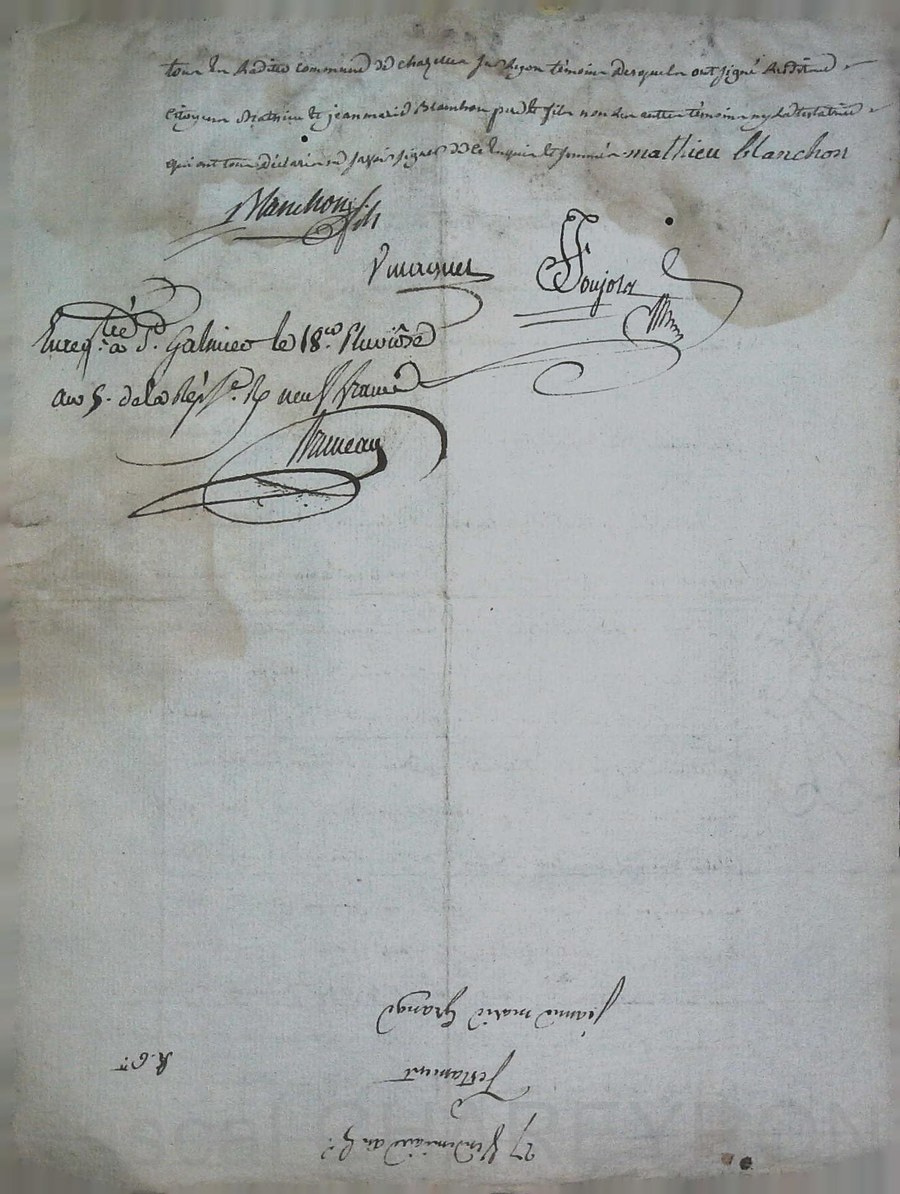 tous de laditte commune de chazelles sur lyon témoins desquels ont signé lesdits
Citoyens Mathieu et jeanmarie Blanchon pere et fils non les autres témoins ny la testatrice
qui ont tous déclaré ne savoir signer de ce enquis et sommés mathieu blanchon
Blanchon fils
Pumagnet
Soujola
Enregtré à St. Galmier le 18.e Pluviôse
an 5. de la Rép.e R neuf francs
jeanne marie Grange
Testament
27 Vendemiaire an 5.e